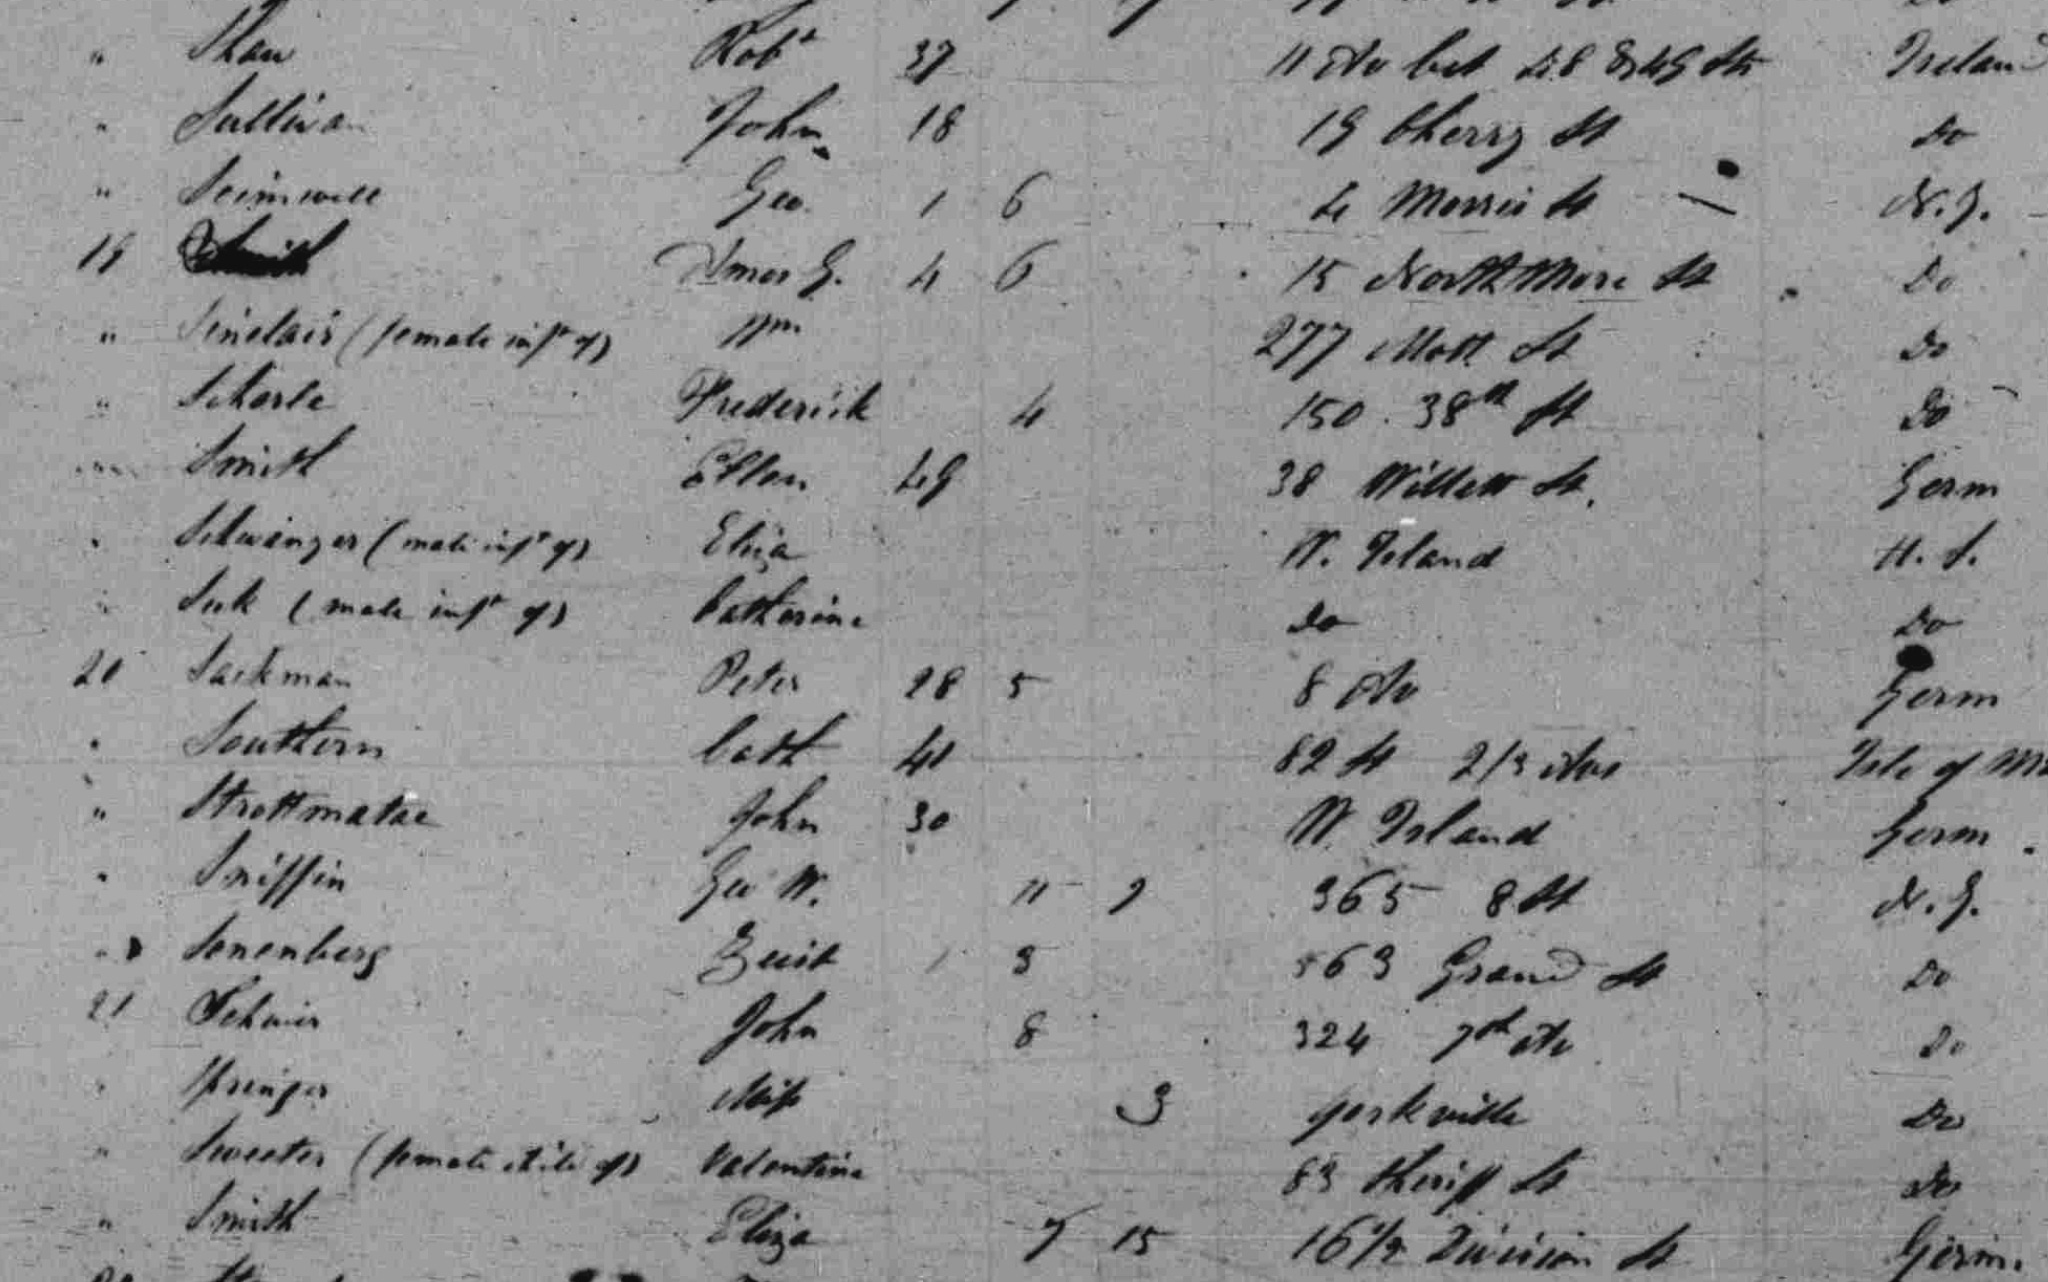 " Shaw Robt 37 11 Av bet 48 & 49 Sts Ireland
" Sullivan John 18 19 Cherry St Do
" Geo. 1 6 4 Morris St N.Y.
19 Smith Amos G. 4 6 15 North Moore St Do
" Sinclair (female inft of) Wm 277 Mott St Do
" Scherle Frederick 4 150 38th St Do
" Smith Ellen 49 38 Willett St. Germ
" Schwinger (male inft of) Eliza W. Island U.S.
" Suk (male inft of) Catherine Do Do
20 Sackman Peter 28 5 8 Av Germ
" Southern Cath 41 82 St 2/3 Avs Isle of
" John 30 W. Island Germ.
" Sniffin Geo W. 11 9 365 8 St N.Y.
" Senenberg 1 3 563 Grand St Do
21 John 8 324 7th Av Do
" Springer Miss 3 Yorkville Do
" Sweeter (female of) Valentine 83 Sheriff St Do
" Smith Eliza 7 15 16 1/2 Division St Germ.